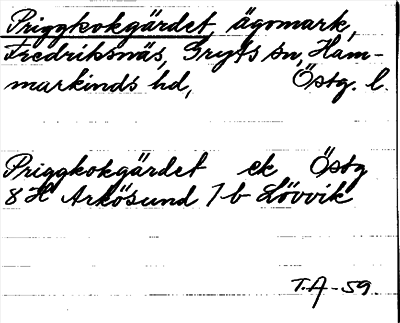 Priggkokgärdet, ägomark,
Fredriksnäs, Gryts sn, Ham-
markinds hd, Östg. l.
Priggkokgärdet ek Östg
8 H Arkösund 7 b Lövvik
T.A-59.